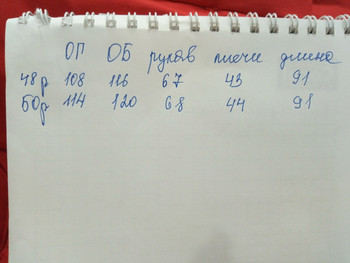 ОГ ОБ рукав плечи длина
48р 108 116 67 43 91
50р 114 120 68 44 91